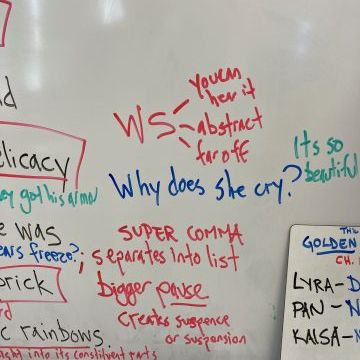 you can
hear it
WS
abstract
far off
Its so
beautiful
elicacy
ey got his armor
Why does she cry?
e was
ears freeze?
SUPER COMMA
; separates into list
bigger pause
creates suspense
or suspension
orick
c rainbows.
light into its constituent parts
THE
GOLDEN
CH.
LYRA-
PAN-
KAISA-